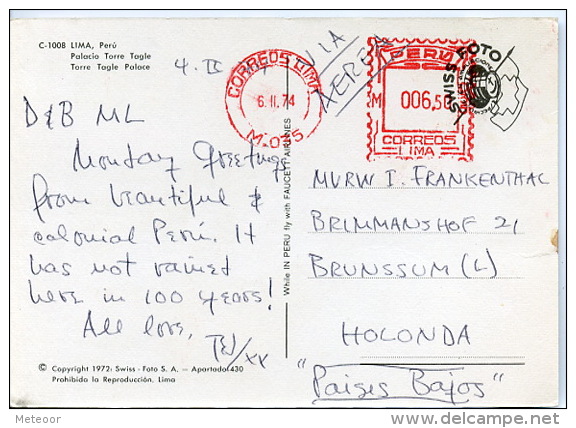 C-1008 LIMA, Perú
Palacio Torre Tagle
Torre Tagle Palace
4. II
VIA
AEREA
CORREOS LIMA
6. II. 74
M. 035
PERU
M 006,50
CORREOS
LIMA
SWISS FOTO
D&B ML
Monday Greetings
from beautiful &
colonial Perú. It
has not rained
here in 100 years!
All love,
xx
While IN PERU fly with FAUCETT AIRLINES
MVRW I. FRANKENTHAL
BRIMMANSHOF 21
BRUNSSUM (L)
HOLONDA
"Paises Bajos"
© Copyright 1972: Swiss - Foto S. A. - Apartado 430
Prohibida la Reproducción. Lima
Meteoor
delcampe.net